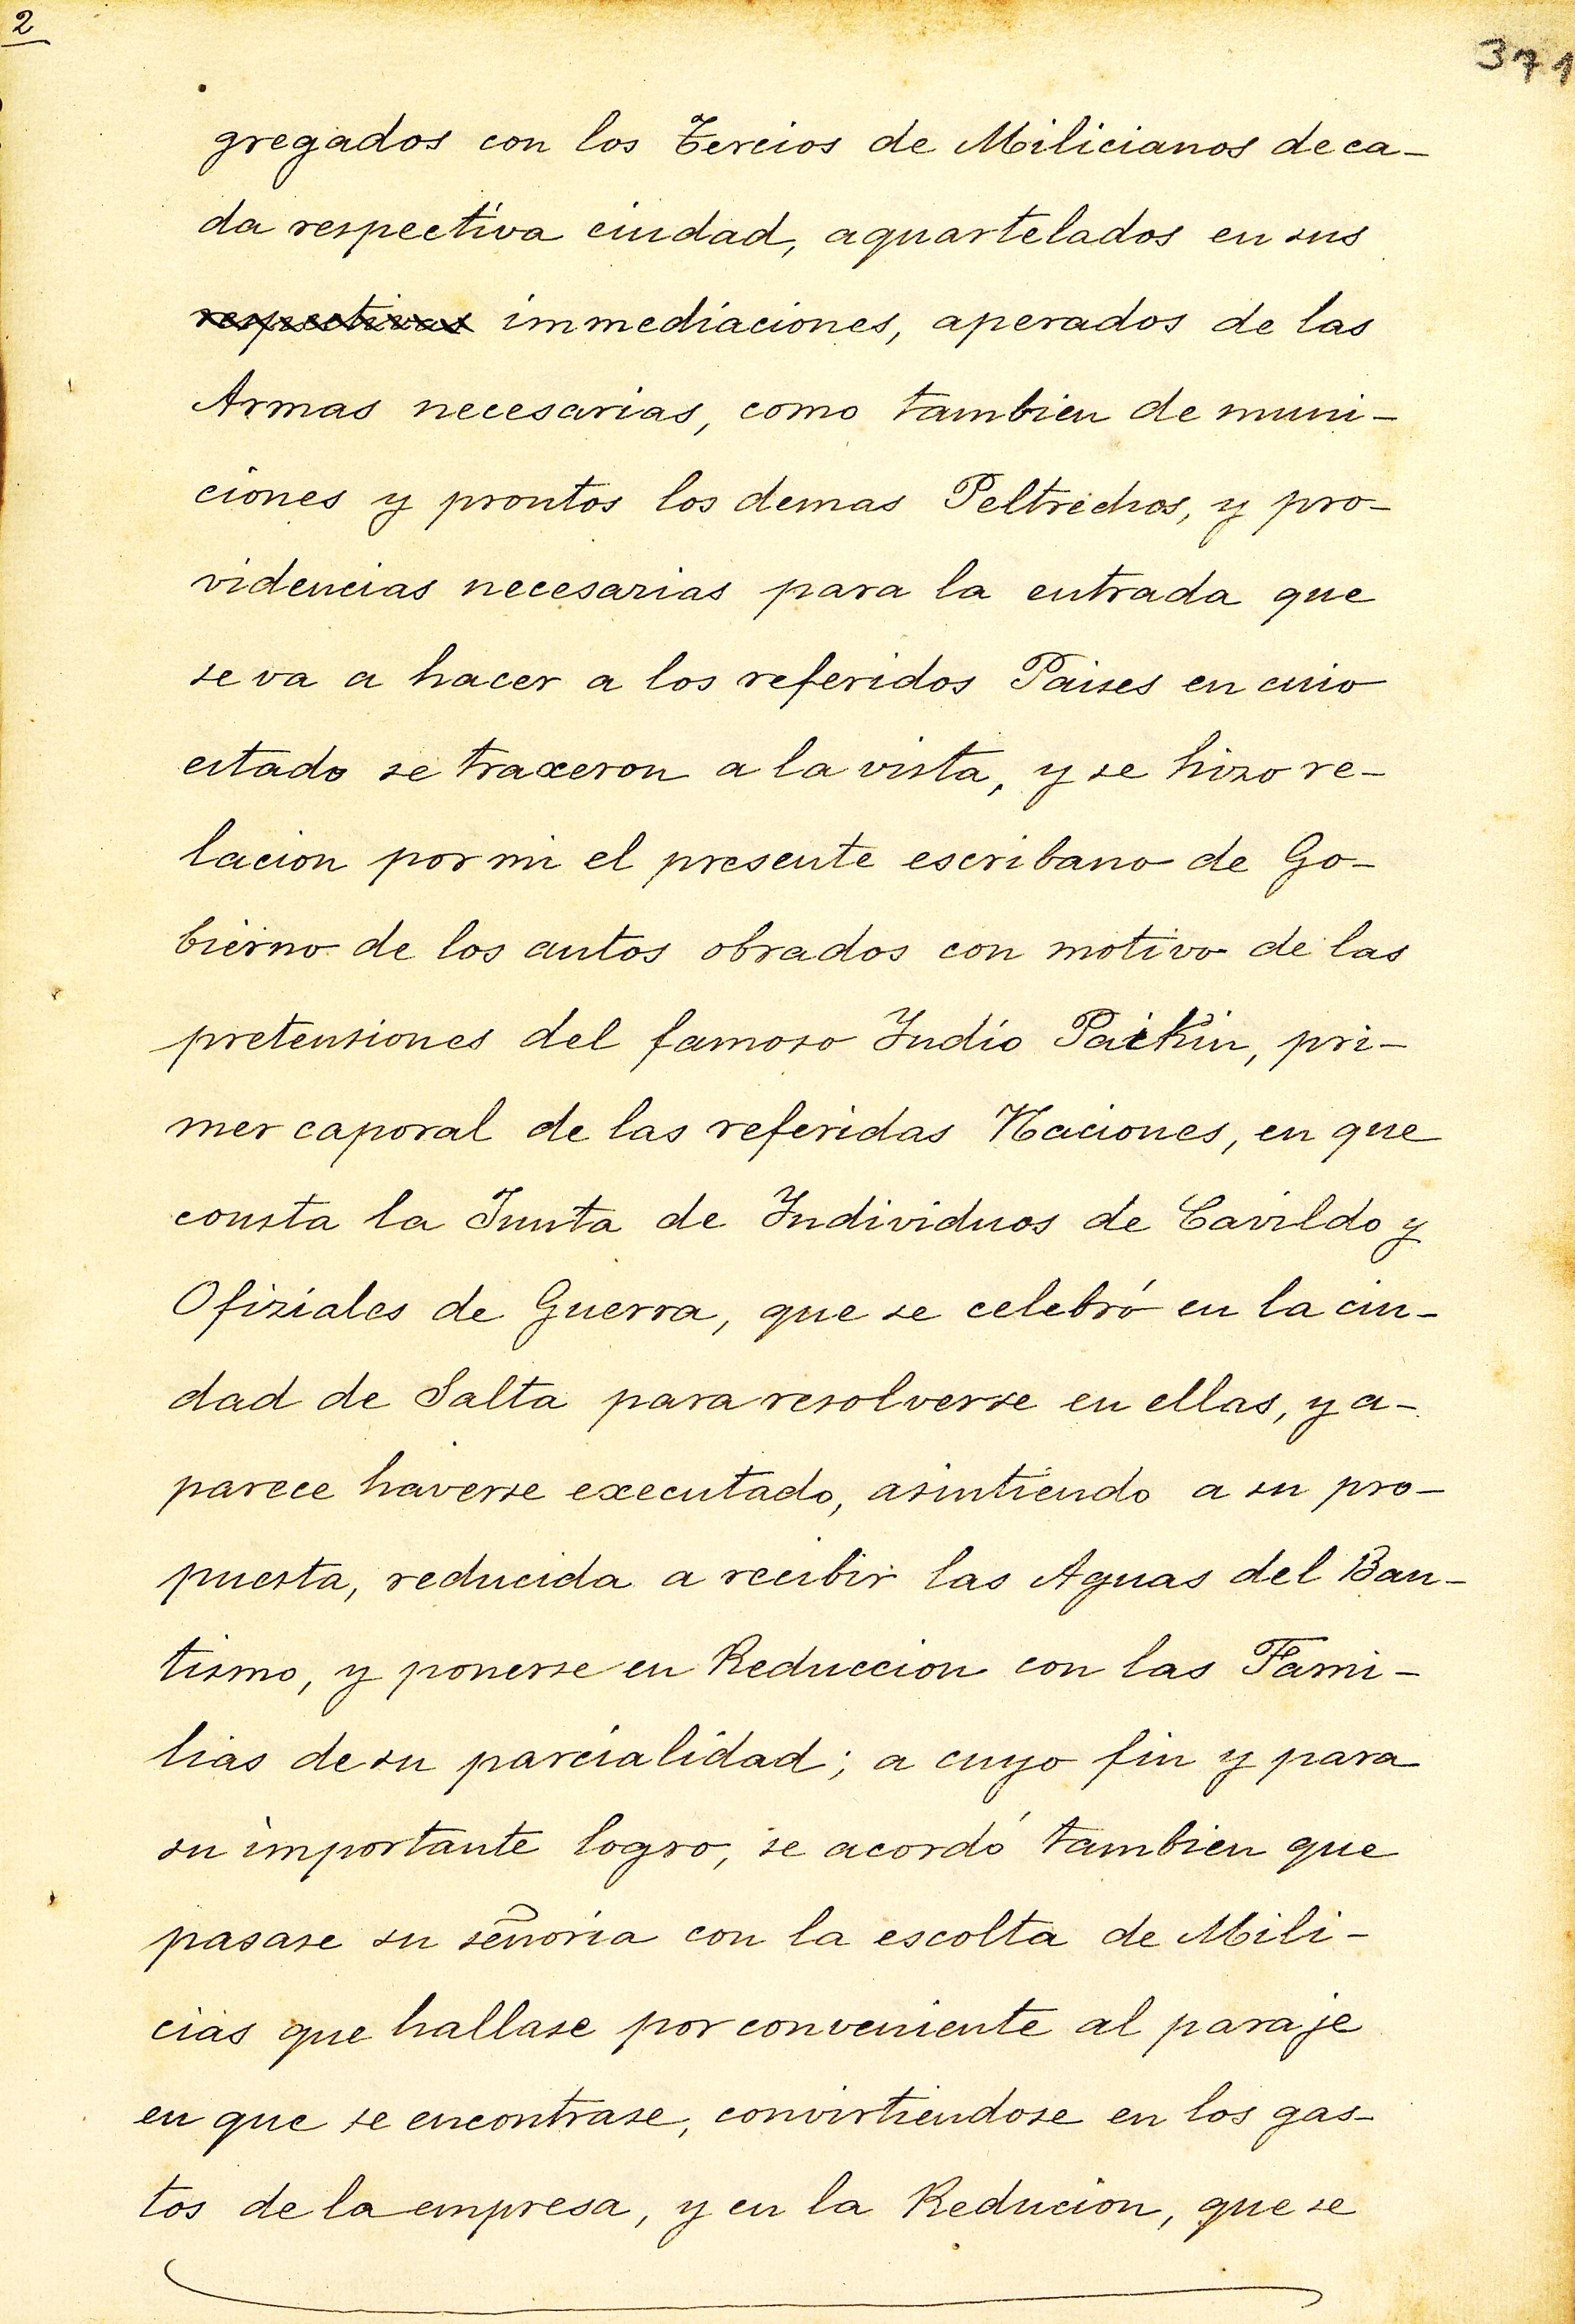 2
371
gregados con los Tercios de Milicianos de ca-
da respectiva ciudad, aquartelados en sus
respectivas immediaciones, aperados de las
Armas necesarias, como tambien de muni-
ciones y prontos los demas Peltrechos, y pro-
videncias necesarias para la entrada que
se va a hacer a los referidos Paises en cuio
estado se traxeron a la vista, y se hizo re-
lacion por mi el presente escribano de Go-
bierno de los autos obrados con motivo de las
pretensiones del famoso Indio Paikin, pri-
mer caporal de las referidas Naciones, en que
consta la Junta de Individuos de Cavildo y
Ofiziales de Guerra, que se celebró en la ciu-
dad de Salta para resolverse en ellas, y a-
parece haverse executado, asintiendo a su pro-
puesta, reducida a recibir las Aguas del Bau-
tismo, y ponerse en Reduccion con las Fami-
lias de su parcialidad; a cuyo fin y para
su importante logro, se acordó tambien que
pasase su señoria con la escolta de Mili-
cias que hallase por conveniente al paraje
en que se encontrase, convirtiendose en los gas-
tos de la empresa, y en la Reducion, que se